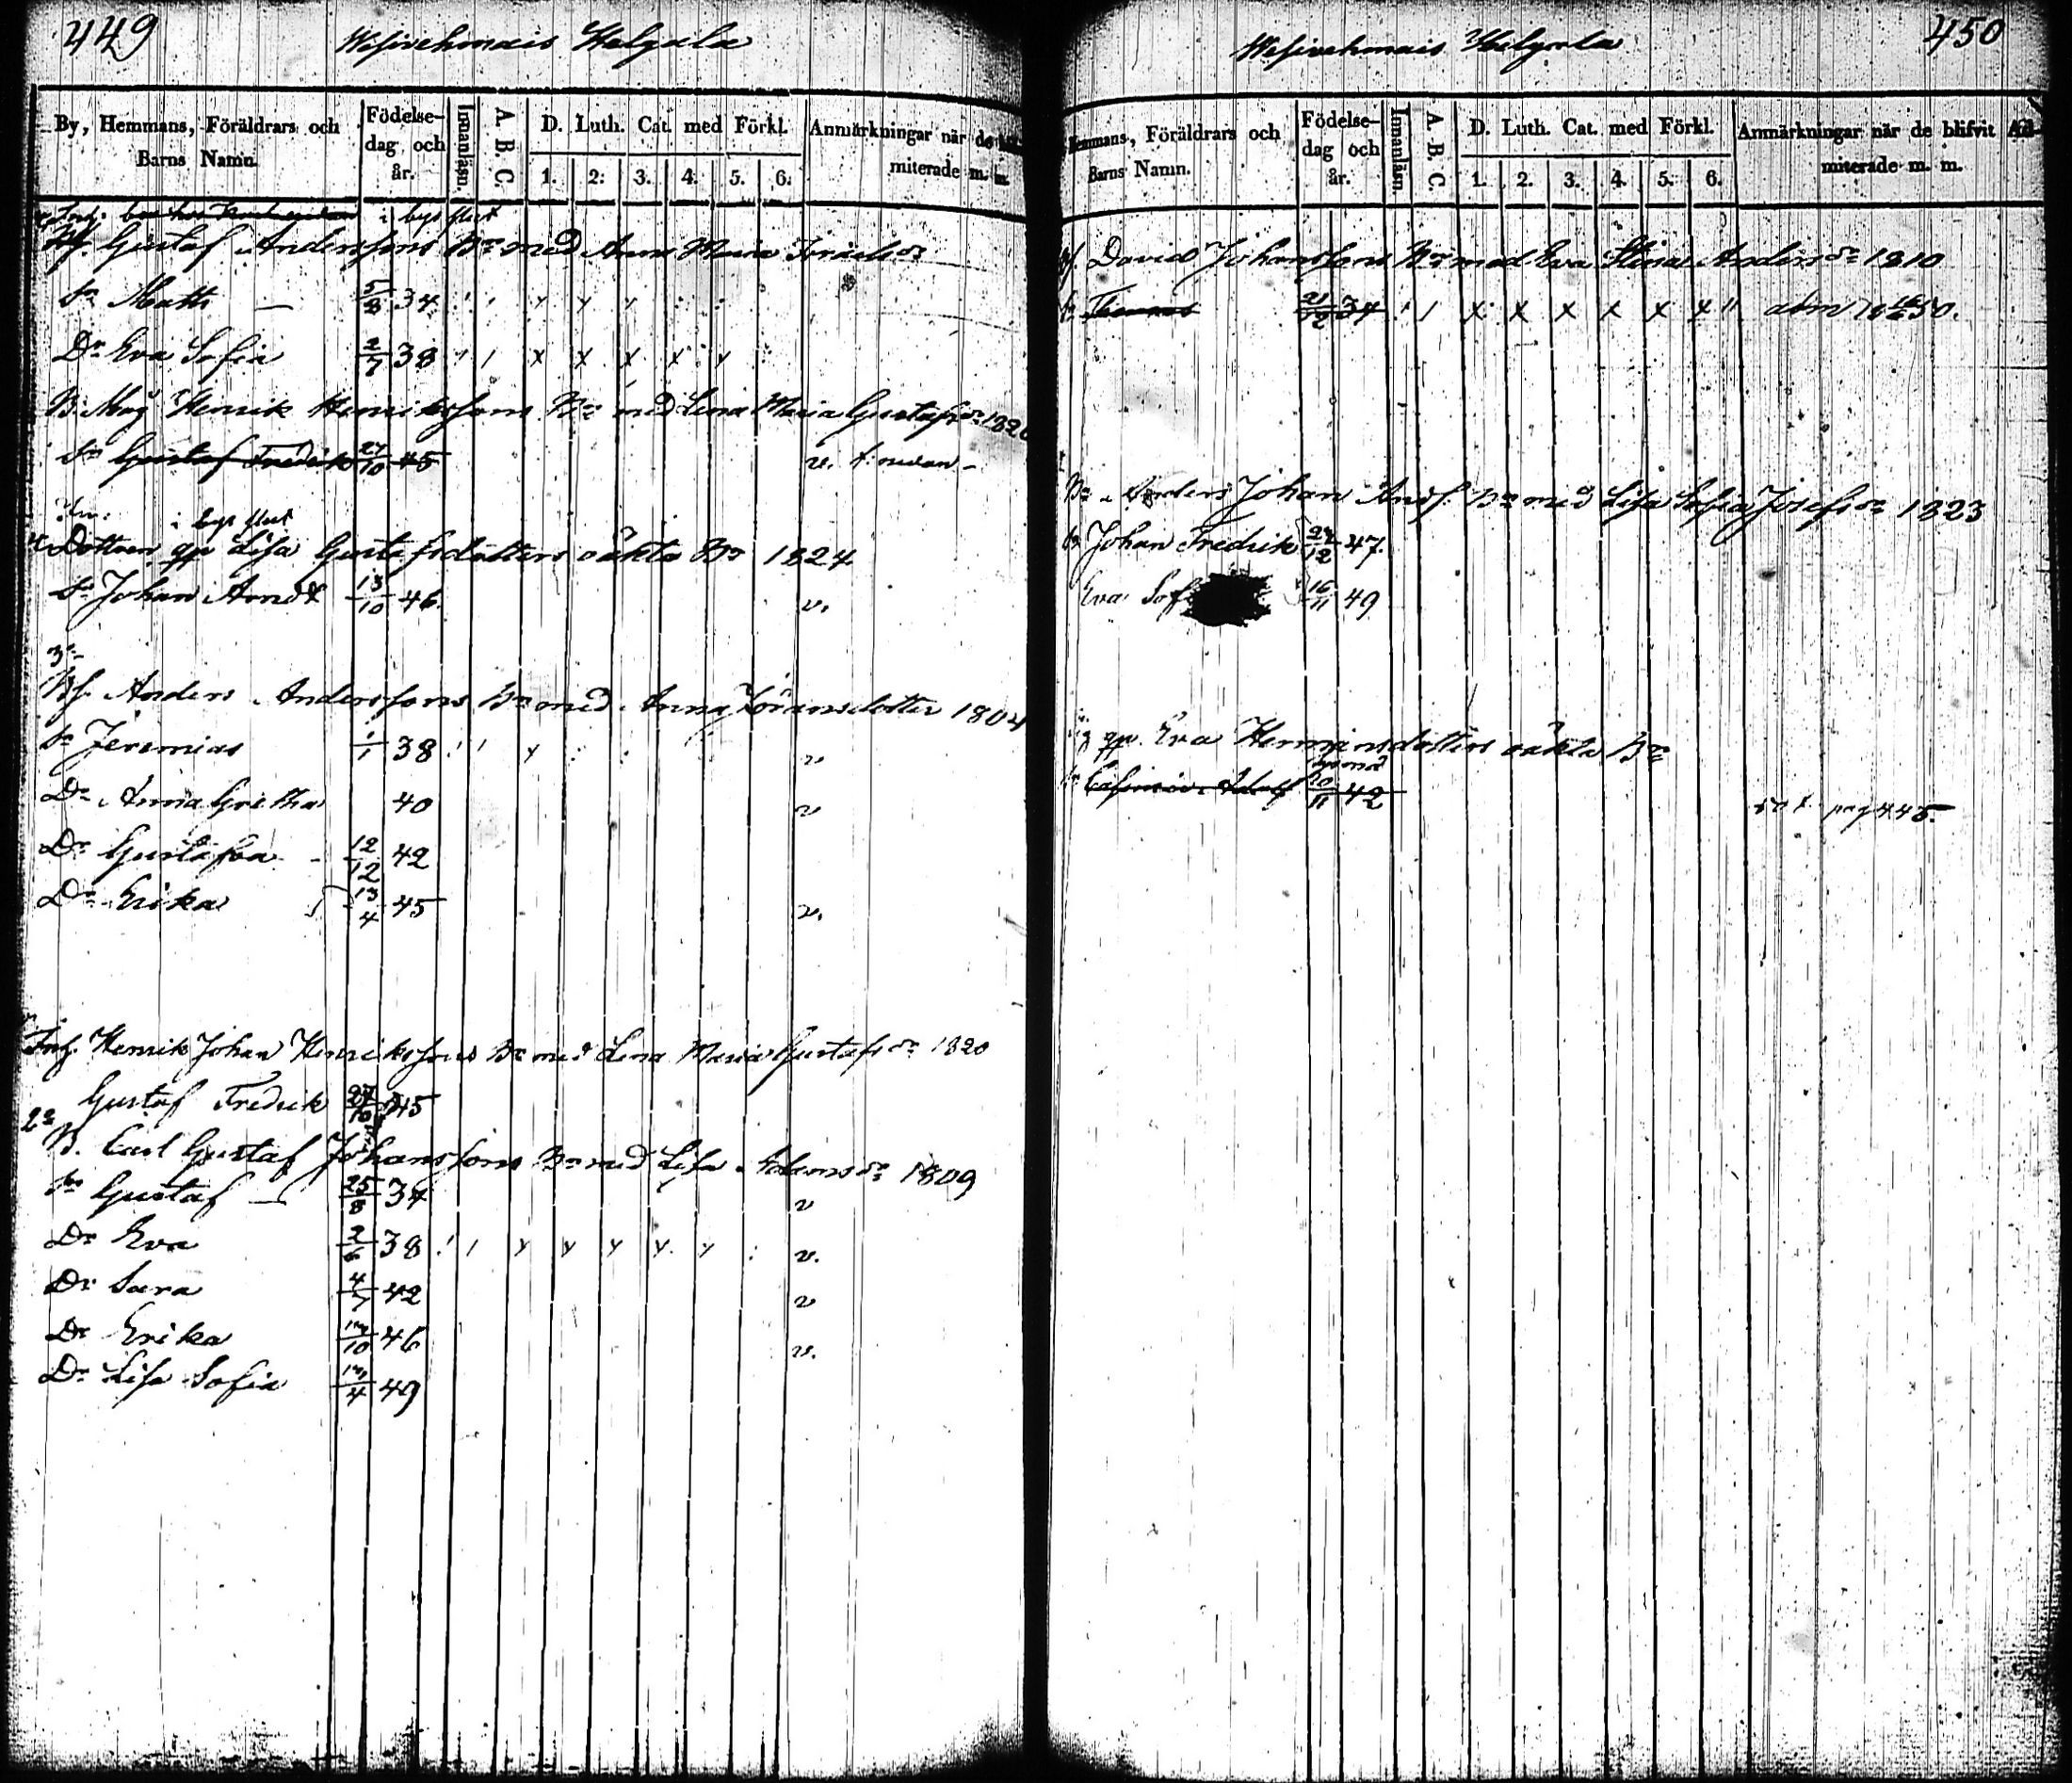 449
Wesivehmais Helgala
By, Hemmans, Föräldrars och Barns Namn.
Födelse-dag och år.
Innanläsn.
A. B. C.
D. Luth. Cat. med Förkl.
1. 2. 3. 4. 5. 6.
Anmärkningar när de miterade m. m.
i byn flut
Gustaf Anderssons Bn med Anna Maria
Sn Matts 5/8 34
Dr Eva Sofia 2/7 38 x x x x
B. Måg Henrik Henrikssons Bn med Lena Maria Gustafsdr 1820
Sn Gustaf Fredrik 27/10 45 v. f. nedan
i byn flut
Dottren qp Lisa Gustafsdotters oäkta Bn 1824
Sn Johan Arndt 13/10 46. v.
3n
Anders Anderssons Bn med Anna Göransdotter 1804
Sn Jeremias 1/1 38 v
Dr Anna Gretha 40 v
Dr Gustafva 12/12 42
Dr Erika 13/4 45 v.
Inh. Henrik Johan Henrikssons Bn med Lena Maria Gustafsdr 1820
Gustaf Fredrik 27/10 45
2n
B. Carl Gustaf Johanssons Bn med Lisa Adamsdr 1809
Sn Gustaf 25/8 34 v
Dr Eva 2/6 38 v.
Dr Sara 4/7 42 v
Dr Erika 46 v.
Dr Lisa Sofia 49
450
Wesivehmais Helgala
Hemmans, Föräldrars och Barns Namn.
Födelse-dag och år.
Innanläsn.
A. B. C.
D. Luth. Cat. med Förkl.
1. 2. 3. 4. 5. 6.
Anmärkningar när de blifvit Ad-miterade m. m.
David Johanssons Bn med Eva Stina Andersdr 1810
Thomas 21/12 34 x x x x x x
Anders Johan Bn med Lisa Sofia Josefsdr 1823
Johan Fredrik 24/12 47.
Eva Sof 16/11 49
qp. Eva Hermansdotters oäkta Bn
Casimir Adolf 20/11 42
pag 445.